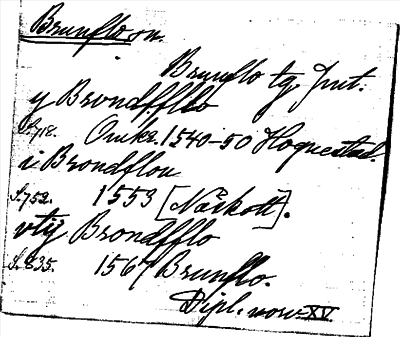 Brunflo sn.
Brunflo tg. Jmt.
y Brondfflo
S. 718. Omkr. 1540-50 Hoquestad.
i Brondflou
S. 752. 1553 [Näskott].
vtj Brondfflo
S. 835. 1567 Brunflo.
Dipl. norv. XV.